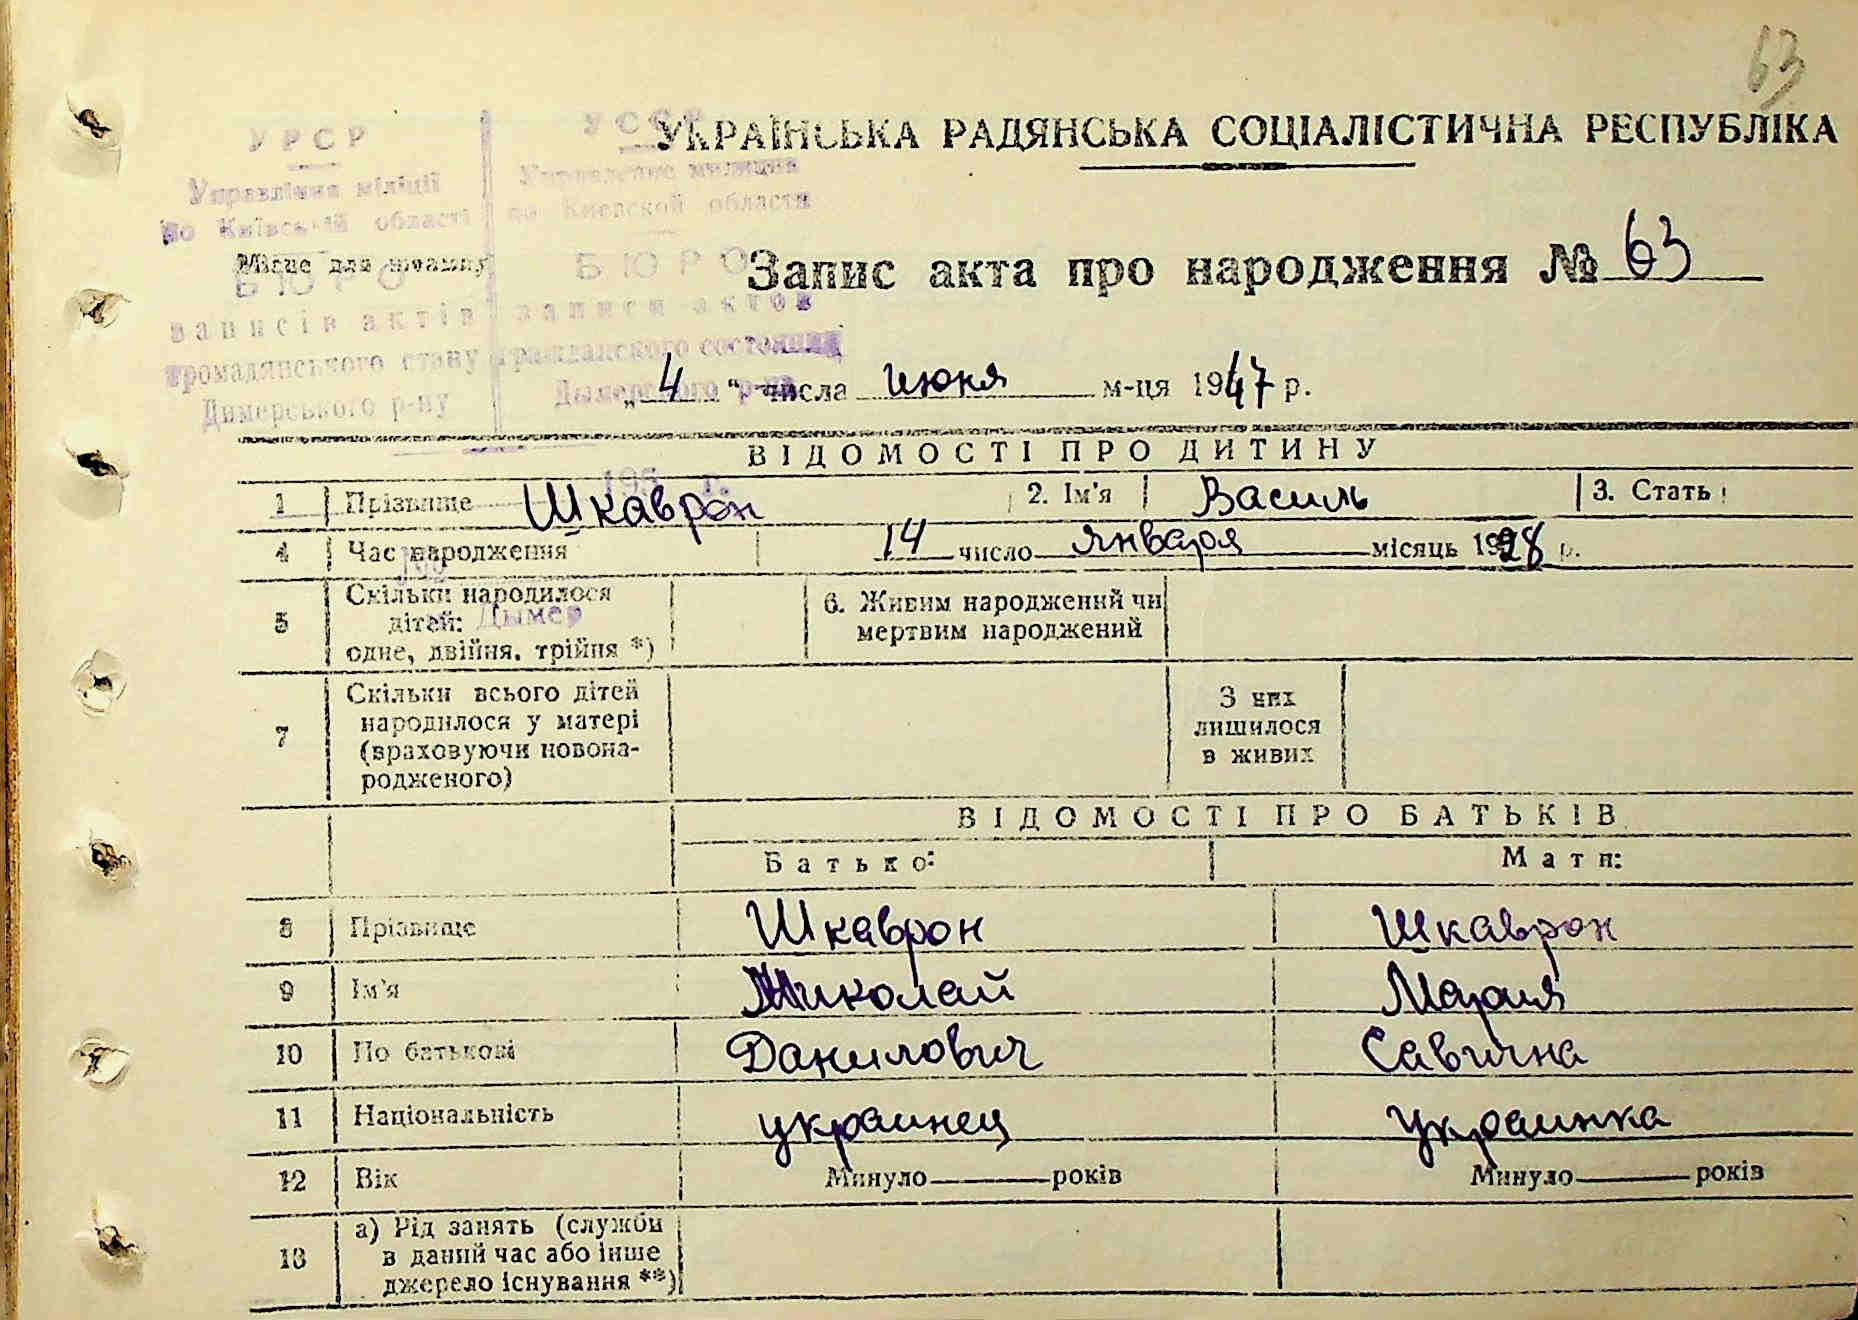 63
УКРАЇНСЬКА РАДЯНСЬКА СОЦІАЛІСТИЧНА РЕСПУБЛІКА
УРСР
Управління міліції
по Київській області
Місце для штампу
БЮРО
записів актів
громадянського стану
Димерського р-ну
УССР
Управление милиции
по Киевской области
БЮРО
записи актов
гражданского состояния
Дымерского р-на
195 г.
Дымер
Запис акта про народження № 63
„ 4 “ числа июня м-ця 1947 р.
ВІДОМОСТІ ПРО ДИТИНУ
1 Прізвище Шкаврон 2. Ім'я Василь 3. Стать
4 Час народження 14 число января місяць 1928 р.
5 Скільки народилося
дітей:
одне, двійня, трійня *)
6. Живим народжений чи
мертвим народжений
7 Скільки всього дітей
народилося у матері
(враховуючи новона-
родженого)
З них
лишилося
в живих
ВІДОМОСТІ ПРО БАТЬКІВ
Батько: Мати:
8 Прізвище Шкаврон Шкаврон
9 Ім'я Николай Мария
10 По батькові Данилович Савична
11 Національність украинец украинка
12 Вік Минуло років Минуло років
13 а) Рід занять (служби
в даний час або інше
джерело існування **)